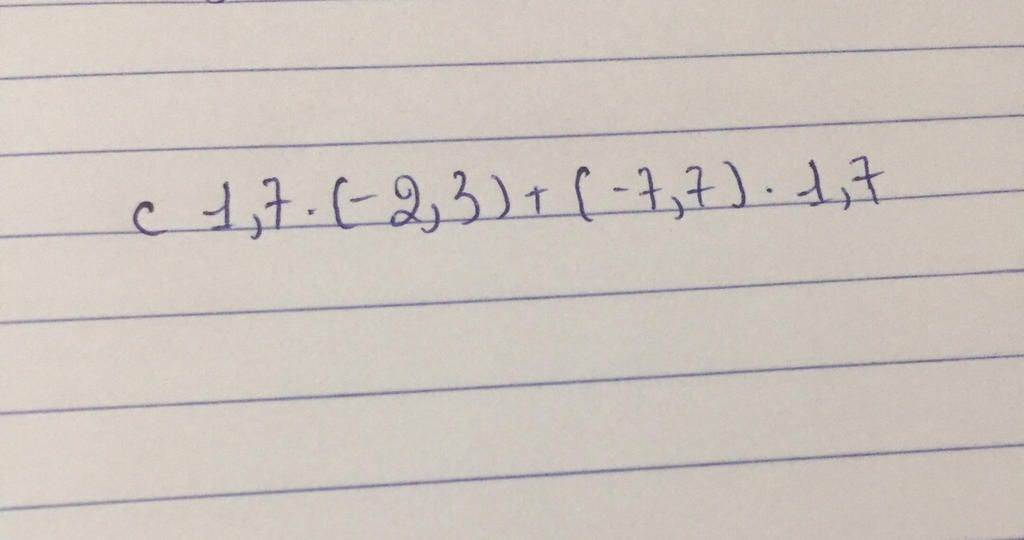 c 1,7.(-2,3)+(-7,7).1,7